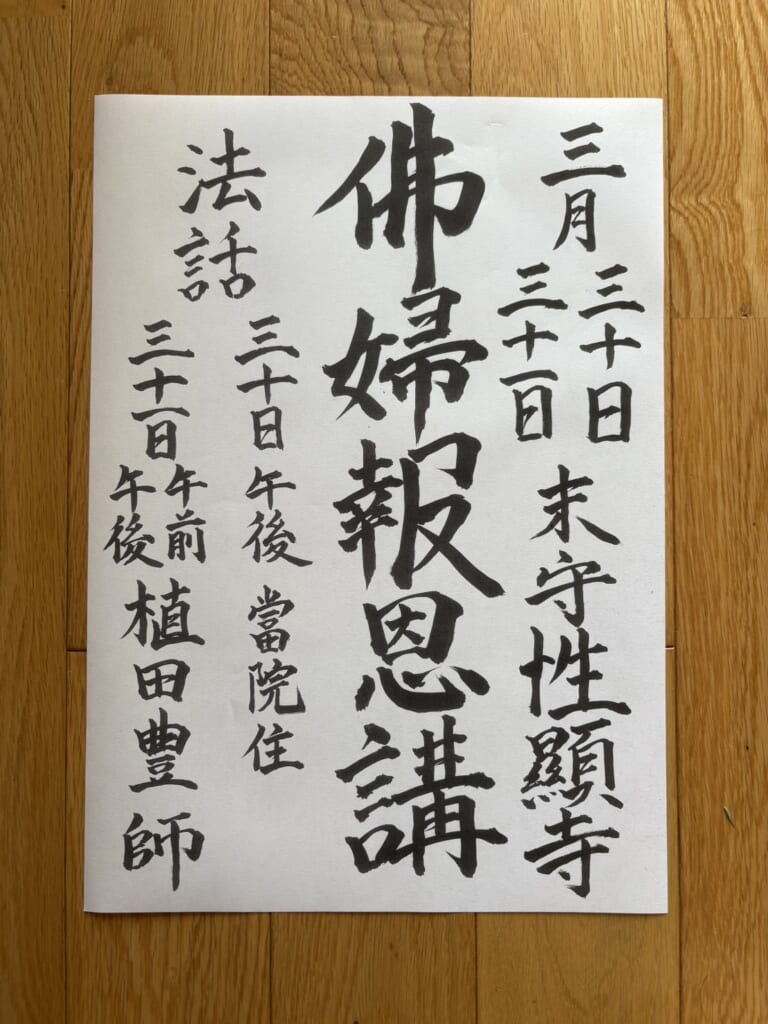 三月 三十日 三十一日 末守性顯寺
佛婦報恩講
法話
三十日 午後 當院住
三十一日 午前 午後 植田豊師